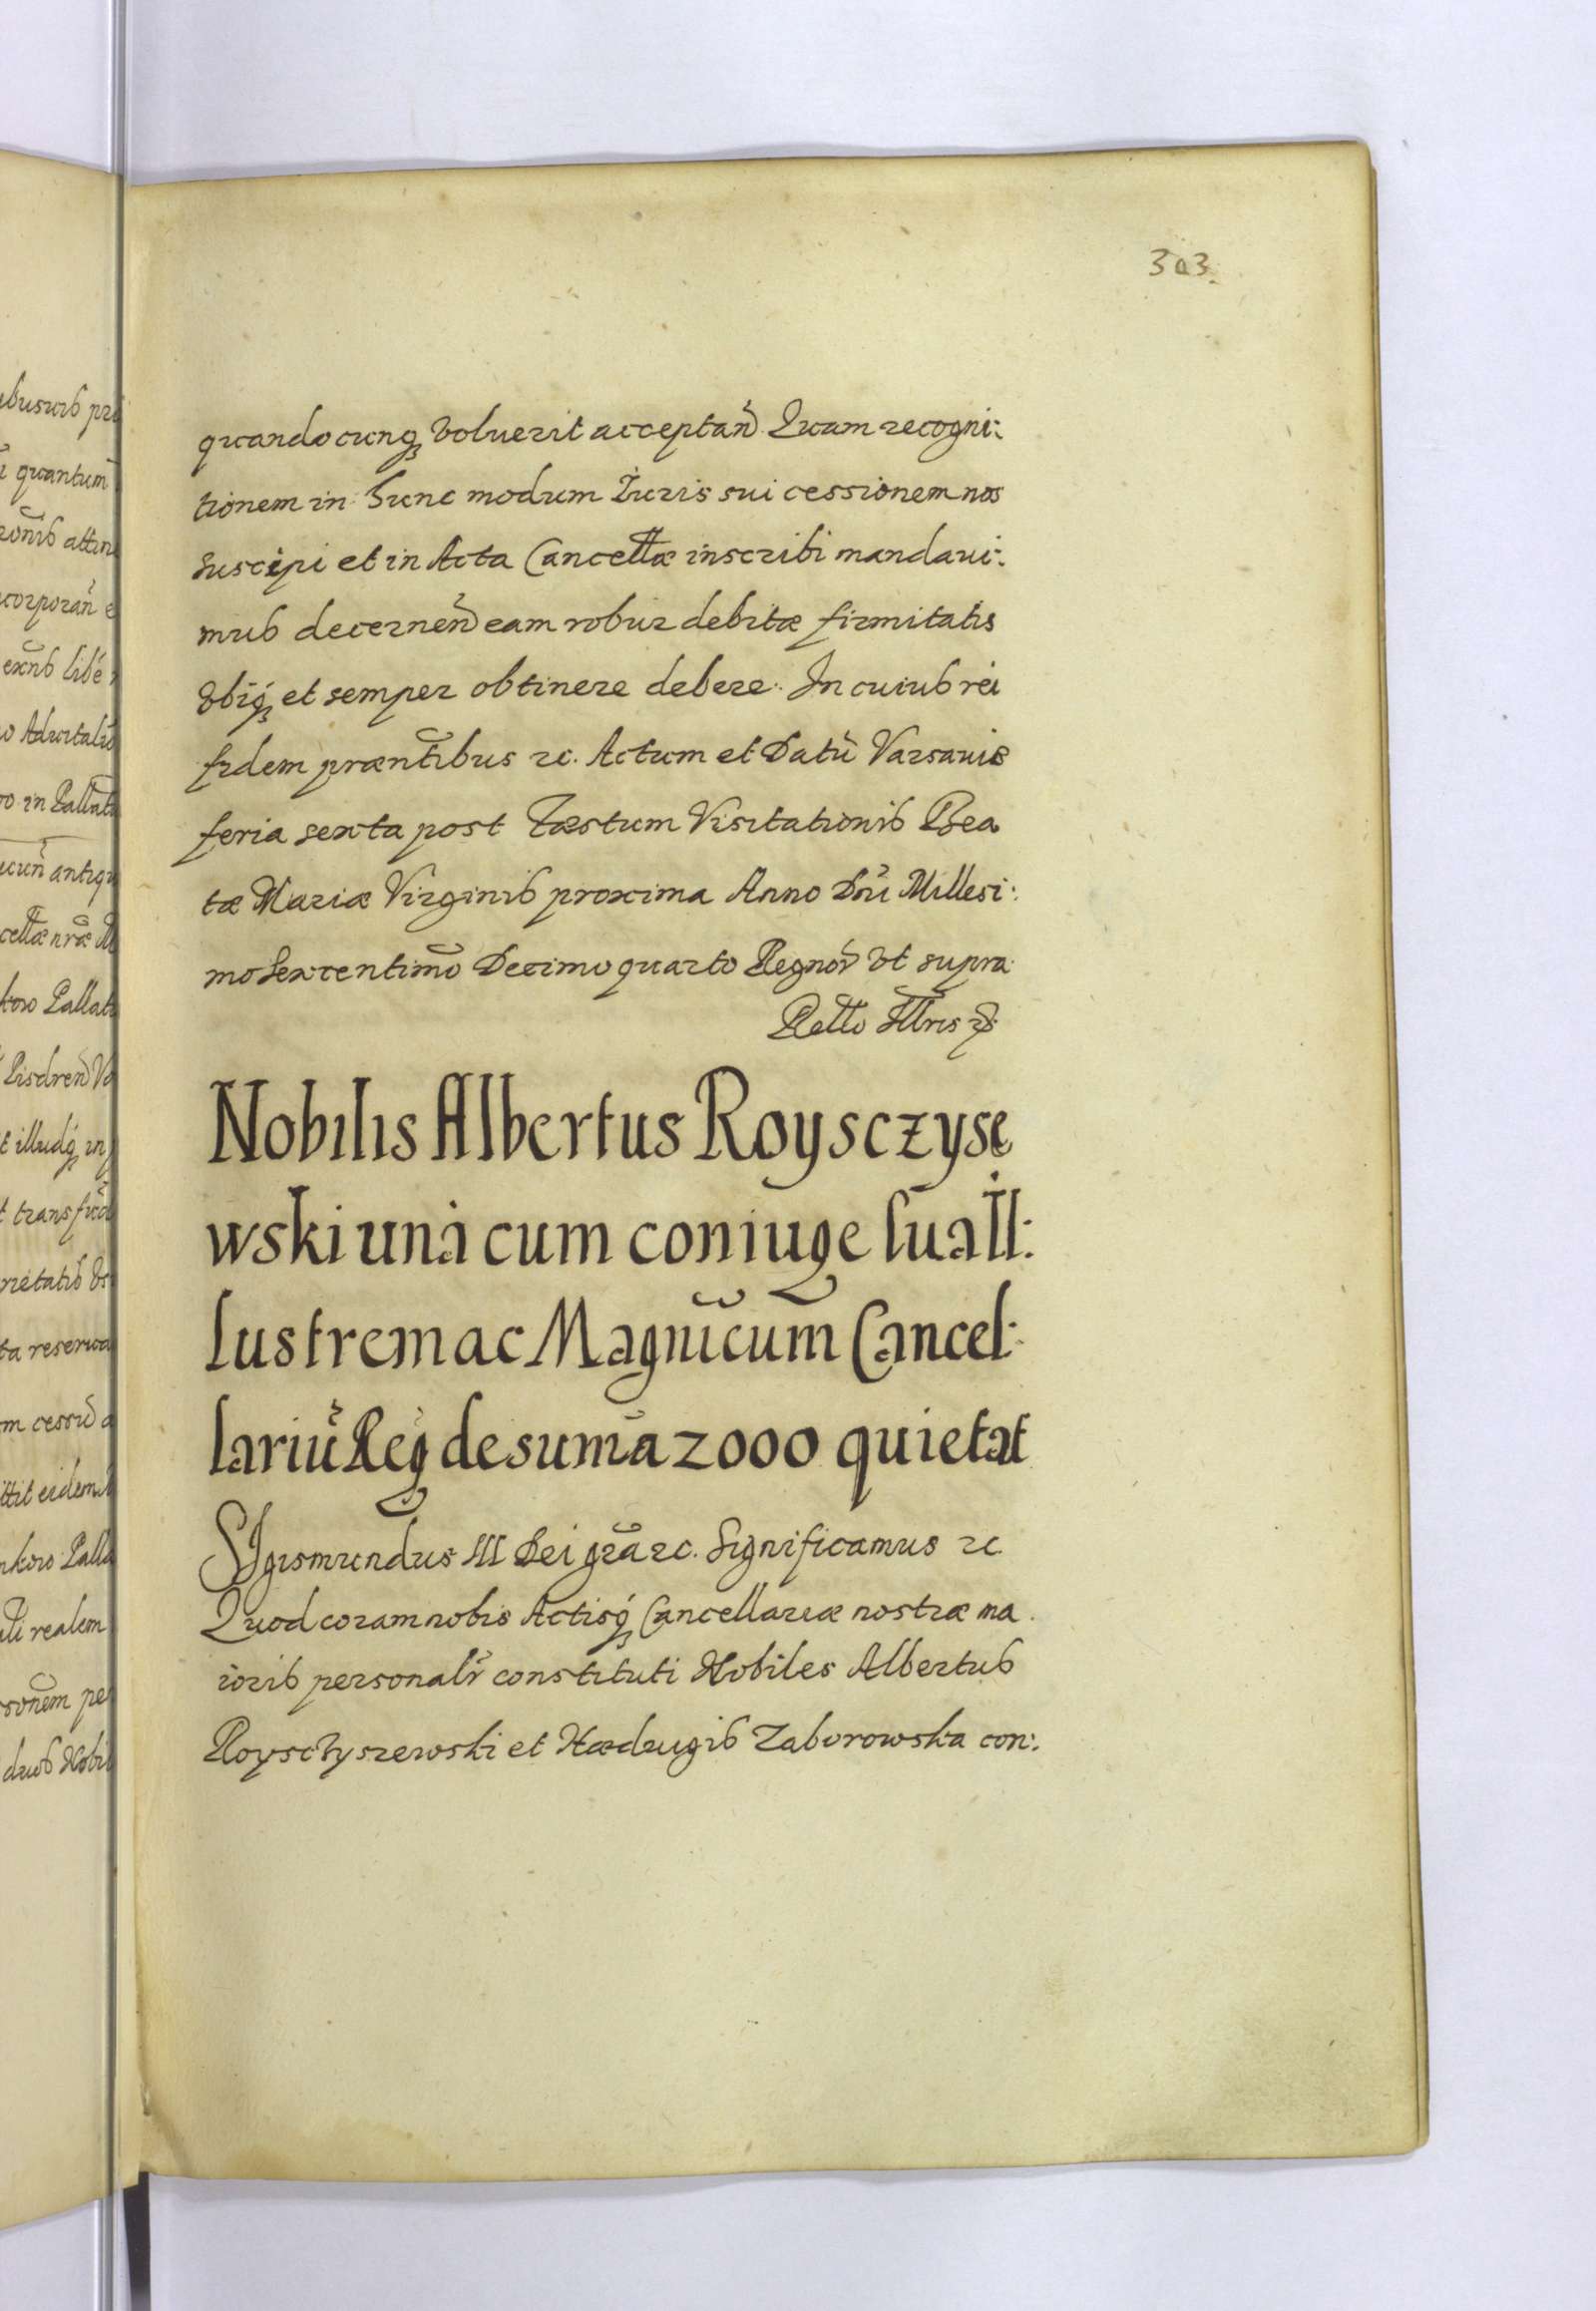 303.
quandocunq̨ voluerit acceptañ. Quam recogni:
tionem in hunc modum Iuris sui cessionem nos
suscipi et in Acta Cancellæ inscribi mandavi:
mus decerneñ eam robur debitæ firmitatis
vbiq̨ et semper obtinere debere. In cuius rei
fidem præntibus ꝛc. Actum et Datũ Varsaviæ
feria sexta post Fæstum Visitationis Bea
tæ Mariæ Virginis proxima Anno Dni Millesi:
mo Sexcentimo Decimo quarto Regnor vt supra.
Rello Illris
Nobilis Albertus Roysczyse
wski unà cum coniuge sua Il:
lustrem ac Magnicum Cancel:
lariũ Reg de suma 2000 quietat
Sigismundus III Dei gra ꝛc. Significamus ꝛc
Quod coram nobis Actisq̨ Cancellariæ nostræ ma
ioris personalr constituti Nobiles Albertus
Roysczyszewski et Hædugis Zaborowska con:
ibusvis
quantum
attin
corporañ
libé
in Pallat
antiqu
cellæ nræ
Pallat
Pisdreñ
illudq̨ in
ta reserva
m cessũ
realem
Nobi